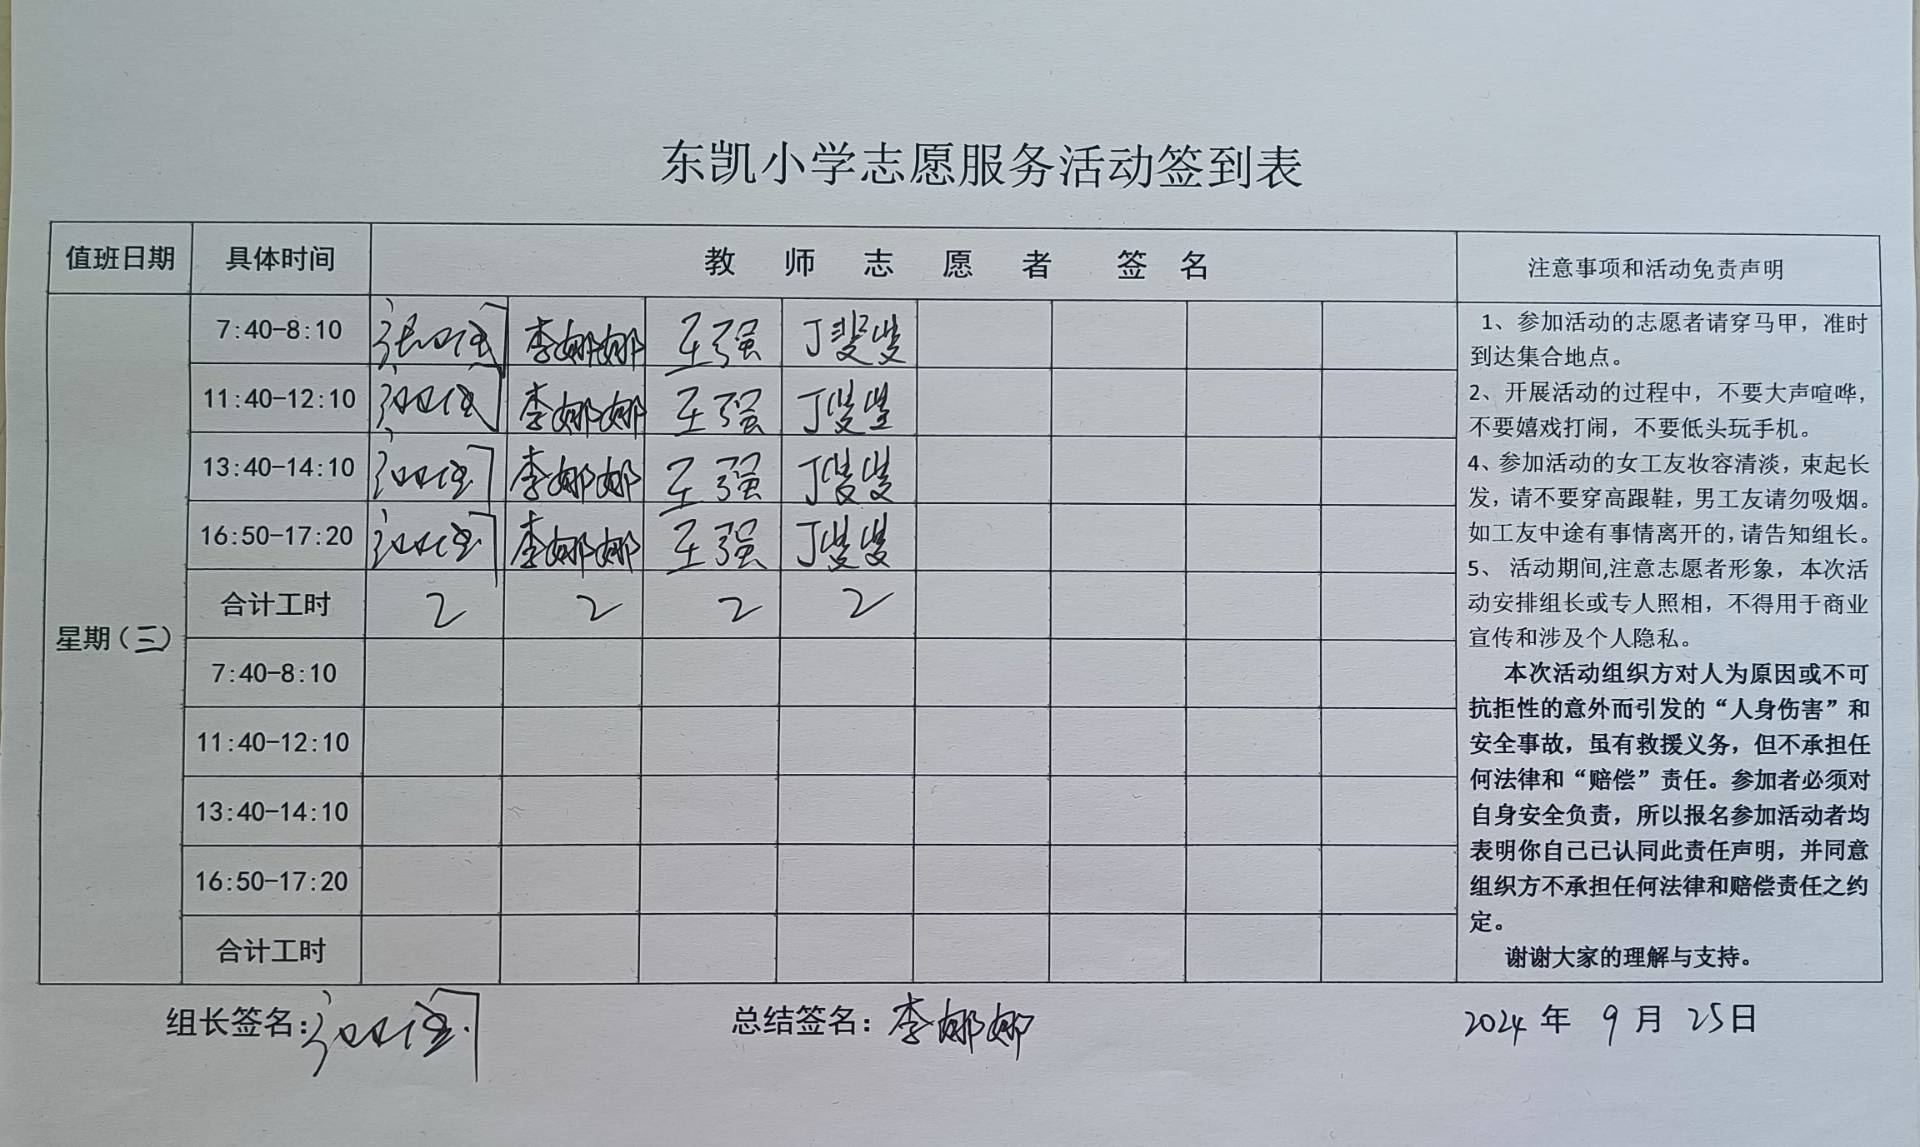 东凯小学志愿服务活动签到表
值班日期 具体时间 教师志愿者签名 注意事项和活动免责声明
星期(三)
7:40-8:10 李娜娜 王强
11:40-12:10 李娜娜 王强
13:40-14:10 李娜娜 王强
16:50-17:20 李娜娜 王强
合计工时 2 2 2 2
7:40-8:10
11:40-12:10
13:40-14:10
16:50-17:20
合计工时
1、参加活动的志愿者请穿马甲，准时
到达集合地点。
2、开展活动的过程中，不要大声喧哗，
不要嬉戏打闹，不要低头玩手机。
4、参加活动的女工友妆容清淡，束起长
发，请不要穿高跟鞋，男工友请勿吸烟。
如工友中途有事情离开的,请告知组长。
5、 活动期间,注意志愿者形象，本次活
动安排组长或专人照相，不得用于商业
宣传和涉及个人隐私。
本次活动组织方对人为原因或不可
抗拒性的意外而引发的“人身伤害”和
安全事故，虽有救援义务，但不承担任
何法律和“赔偿”责任。参加者必须对
自身安全负责，所以报名参加活动者均
表明你自己已认同此责任声明，并同意
组织方不承担任何法律和赔偿责任之约
定。
谢谢大家的理解与支持。
组长签名: 总结签名: 李娜娜 2024年 9月 25日